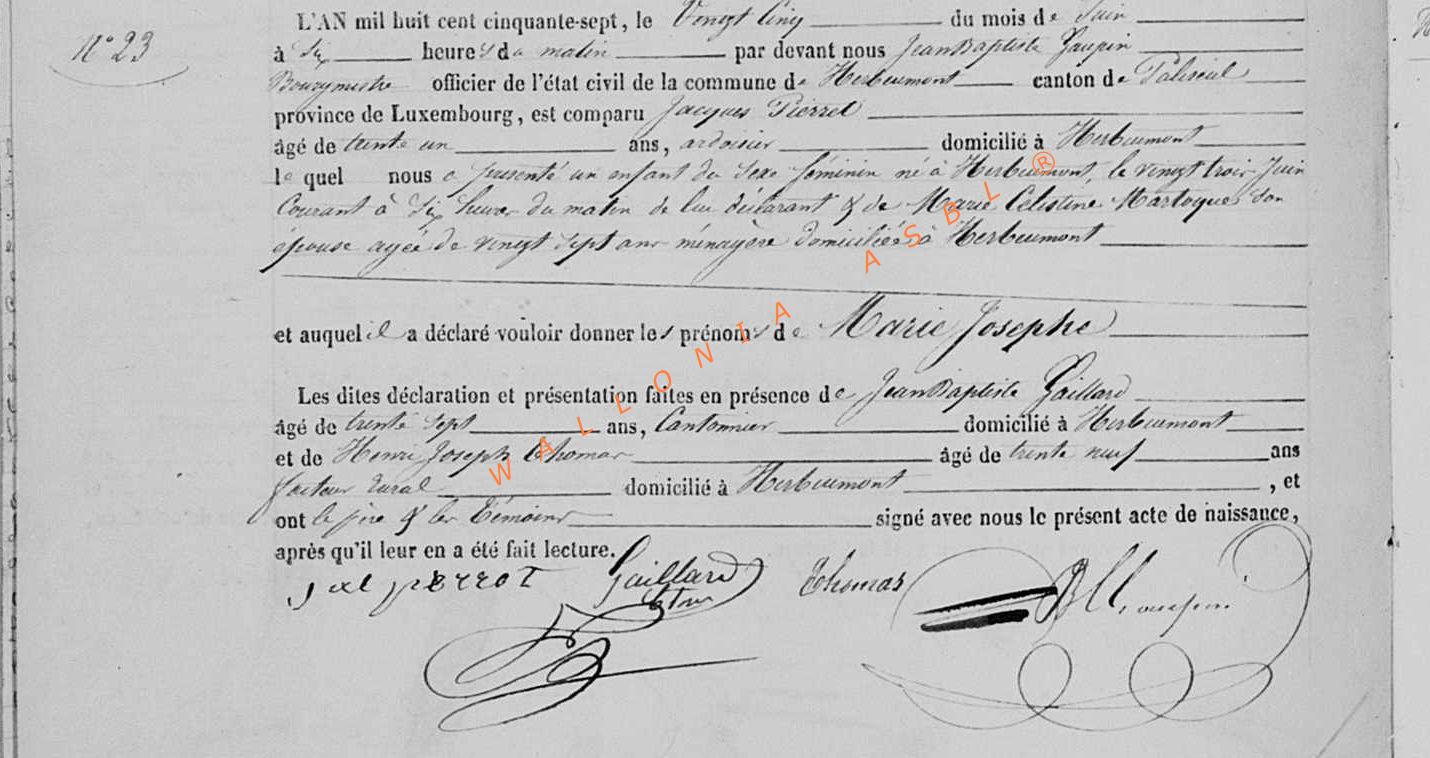 N° 23
L'AN mil huit cent cinquante-sept, le Vingt Cinq du mois de Juin
à Six heures du matin par devant nous Jean Baptiste
Bourgmestre officier de l'état civil de la commune de Herbeumont canton de Paliseul
province de Luxembourg, est comparu Jacques Pierret
âgé de trente un ans, ardoisier domicilié à Herbeumont
lequel nous a présenté un enfant du Sexe féminin né à Herbeumont, le vingt trois Juin
Courant à Six heures du matin de lui déclarant & de Marie Célestine Martoque, son
épouse agée de vingt Sept ans ménagère domiciliée à Herbeumont
et auquel il a déclaré vouloir donner les prénoms de Marie Josephe
Les dites déclaration et présentation faites en présence de Jean Baptiste Gaillard
âgé de trente Sept ans, Cantonnier domicilié à Herbeumont
et de Henri Joseph Thomas âgé de trente neuf ans
facteur rural domicilié à Herbeumont, et
ont le père & les témoins signé avec nous le présent acte de naissance,
après qu'il leur en a été fait lecture.
Gaillard Thomas
WALLONIA ASBL ®